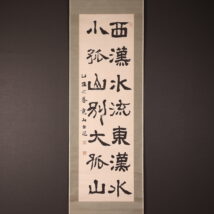 西漢水流東漢水
小孤山別大孤山